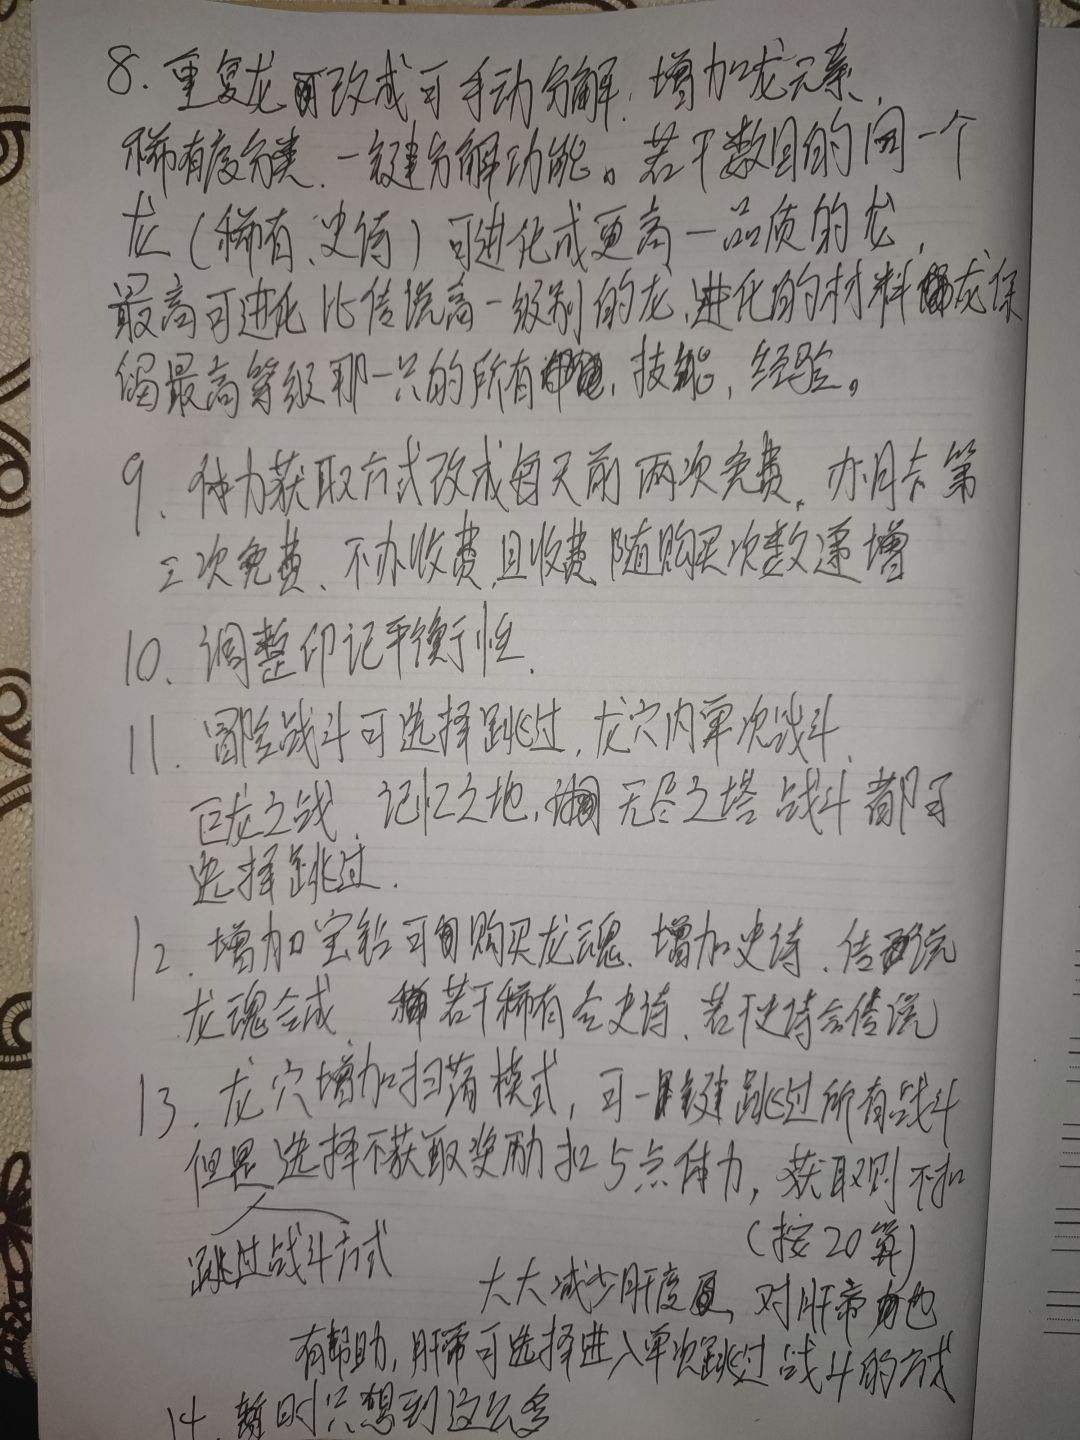 8. 重复龙可改成可手动分解. 增加龙元素、
稀有度分类、一键分解功能。若干数目的同一个
龙(稀有、史诗)可进化成更高一品质的龙,
最高可进化比传说高一级别的龙、进化的材料龙保
留最高等级那一只的所有、技能,经验。
9. 体力获取方式改成每天前两次免费、办月卡第
三次免费、不办收费,且收费随购买次数递增
10. 调整印记平衡性.
11. 冒险战斗可选择跳过, 龙穴内单次战斗、
巨龙之战、记忆之地, 无尽之塔 战斗都可
选择跳过.
12. 增加宝钻可购买龙魂、增加史诗、传说
龙魂合成 若干稀有合史诗、若干史诗合传说
13. 龙穴增加扫荡模式, 可一键跳过所有战斗
但是选择不获取奖励扣5点体力, 获取则不扣
跳过战斗方式
(按20算)
大大减少肝度, 对肝帝也
有帮助, 肝帝可选择进入单次跳过战斗的方式
14. 暂时只想到这么多